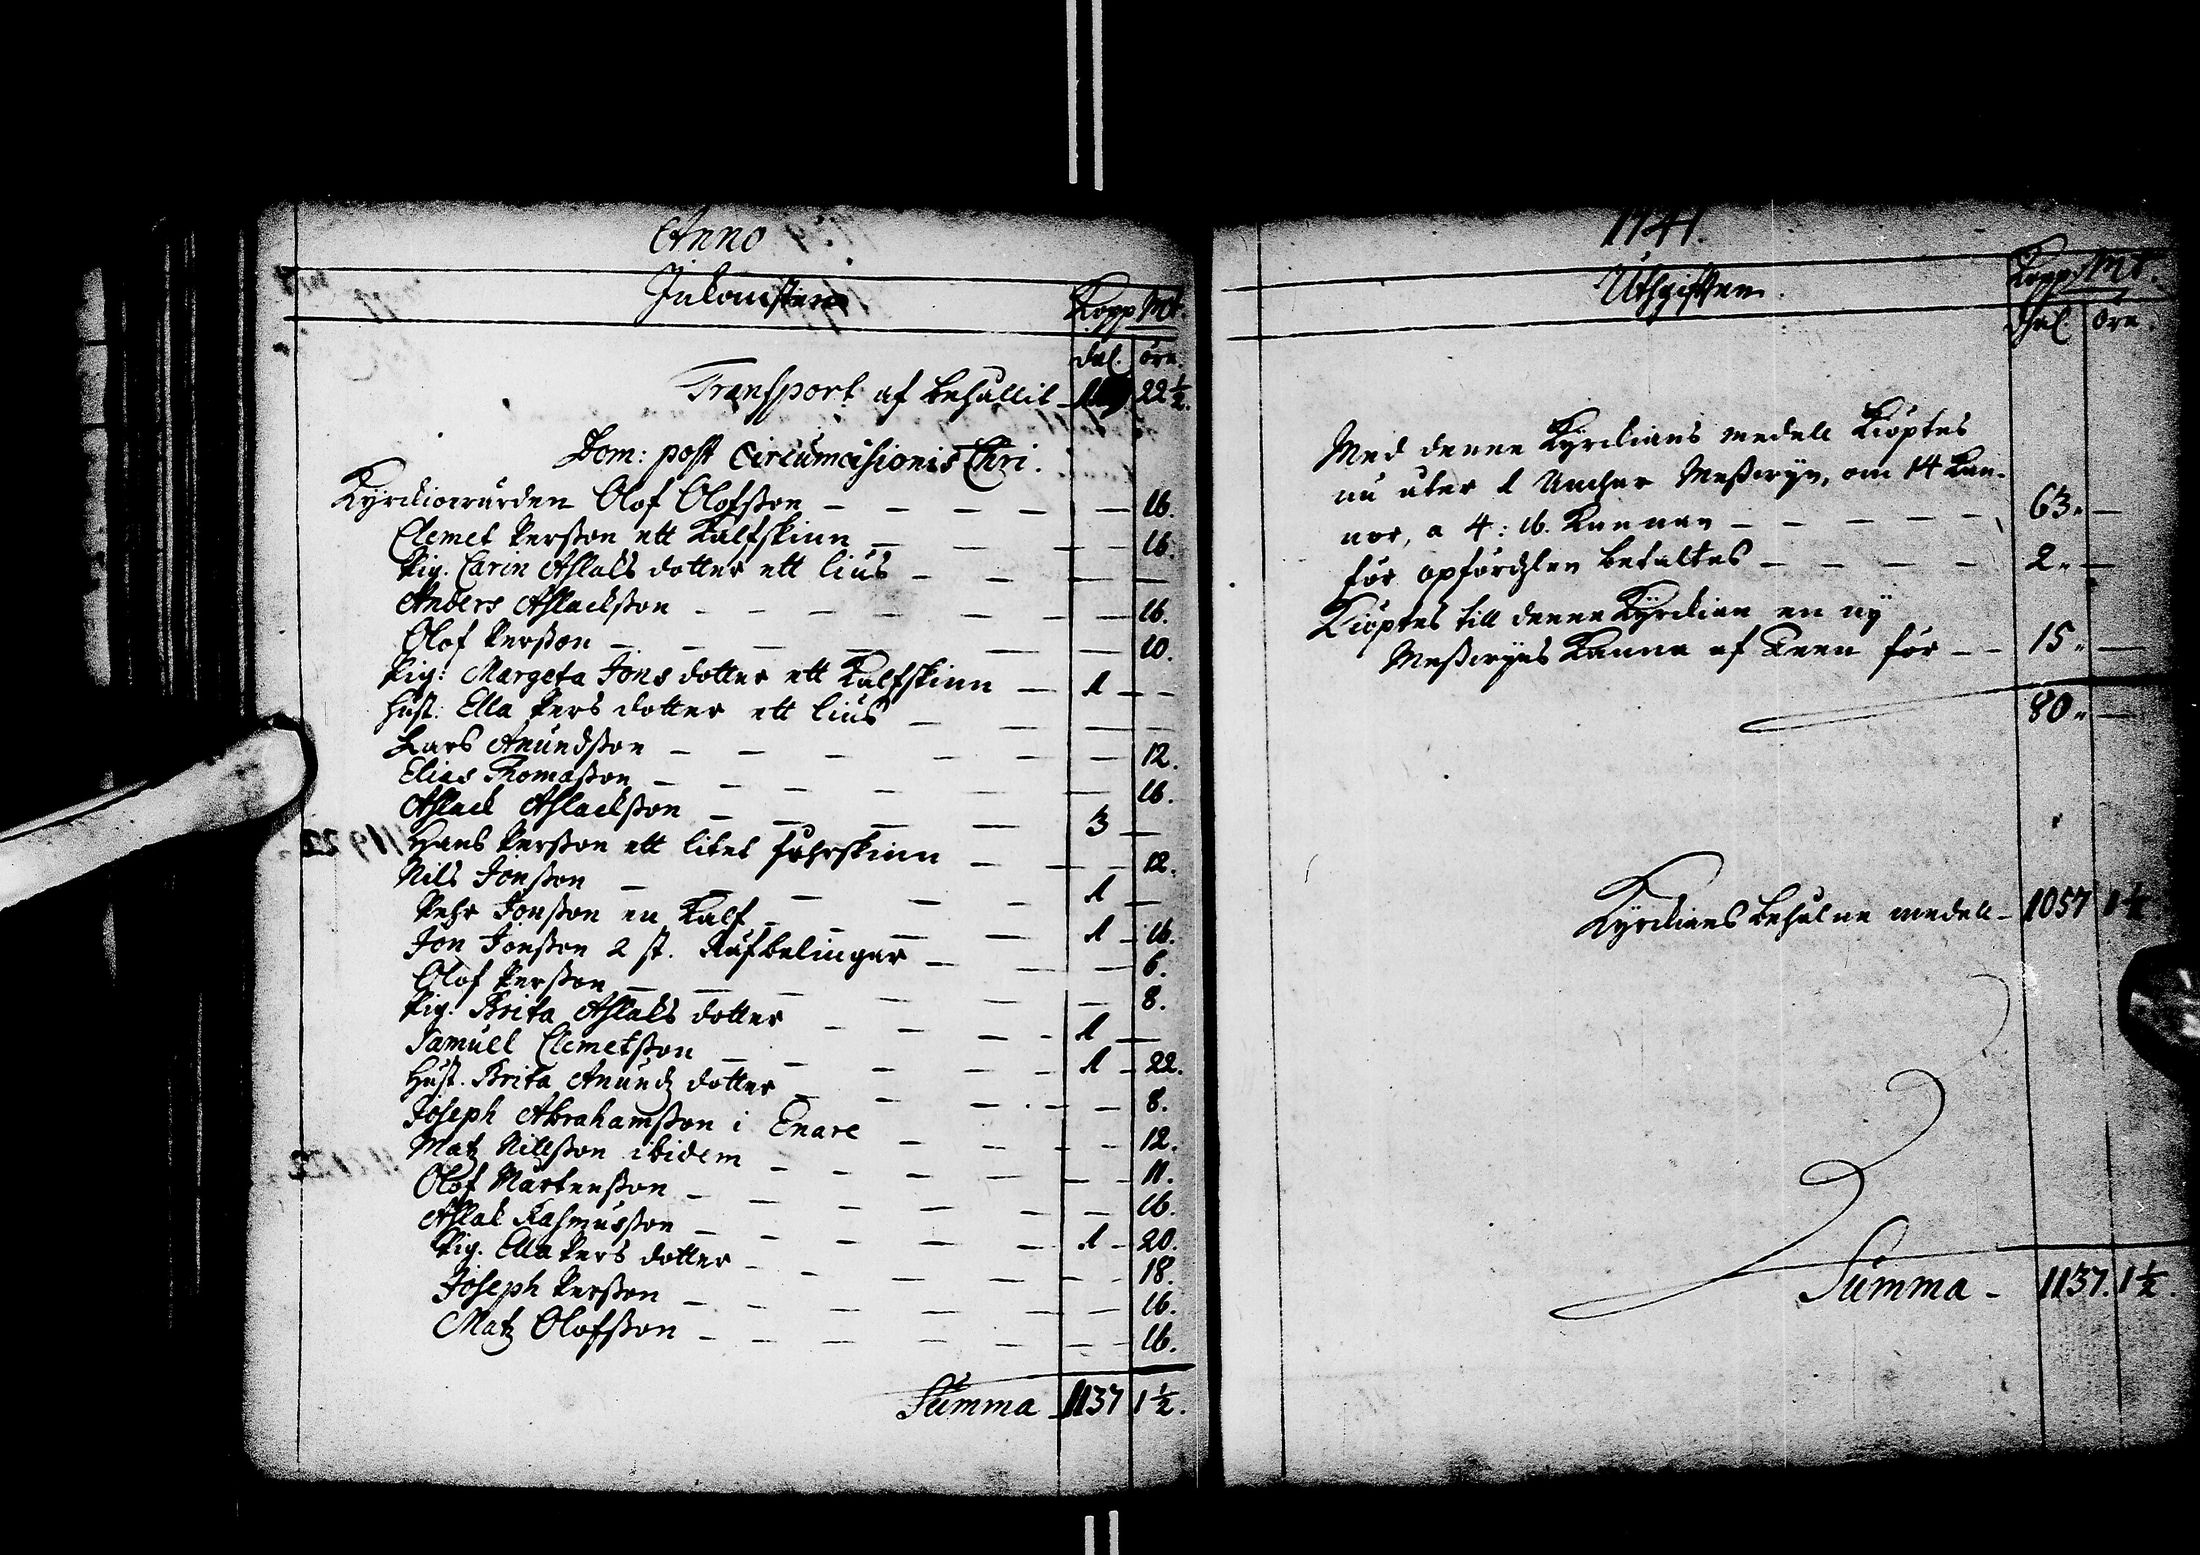 Anno
Inkombsten
Kopp Mt.
dal. öre.
Transport af behållit 22½.
Dom: post Circumcisionis Chri.
Kyrckiowärden Olof Olofsson 16.
Clemet Persson ett Kalfskinn 16.
Pig. Carin Aslaks dotter ett lius
Anders Aslacksson 16.
Olof Persson 10.
Pig: Margeta Jons dotter ett Kalfskinn 1
Hust. Ella Pers dotter ett lius
Lars Anundsson 12.
Elias Thomasson 16.
Aslack Aslacksson 3
Hans Persson ett litet fåhrskinn 12.
Nils Jonsson 1
Pehr Jonsson en Kalf 1 16.
Jon Jonsson 2 st. Räfbelingar 6.
Olof Persson 8.
Pig. Brita Aslaks dotter 1
Samuel Clemetsson 1 22.
Hust. Brita Anundz dotter 8.
Joseph Abrahamsson i Enare 12.
Matz Nillsson ibidem 11.
Olof Mårtensson 16.
Aslak Rasmusson 1 20.
Pig. Ella Pers dotter 18.
Joseph Persson 16.
Matz Olofsson 16.
Summa 1137 1½.
1741.
Uthgifften
Kopp Mt.
dal öre.
Med denne Kyrckians medell kiöptes
nu åter 1 Anchar Messwyn, om 14 Kan-
nor, a 4: 16. Kannan 63.
för opfördzlen betaltes 2.
Kiöptes till denne Kyrckian en ny
Messwyns Kanna af Teen för 15.
80.
Kyrckians behåldne medell 1057 1½
Summa 1137. 1½.